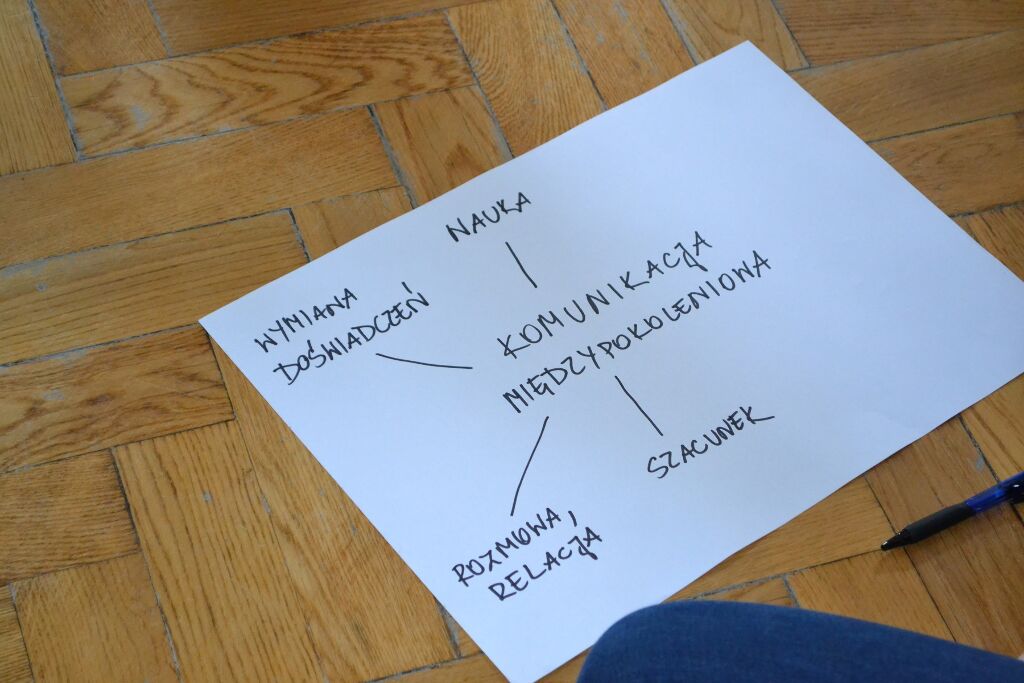 NAUKA
WYMIANA
DOŚWIADCZEŃ
KOMUNIKACJA
MIĘDZYPOKOLENIOWA
SZACUNEK
ROZMOWA,
RELACJA